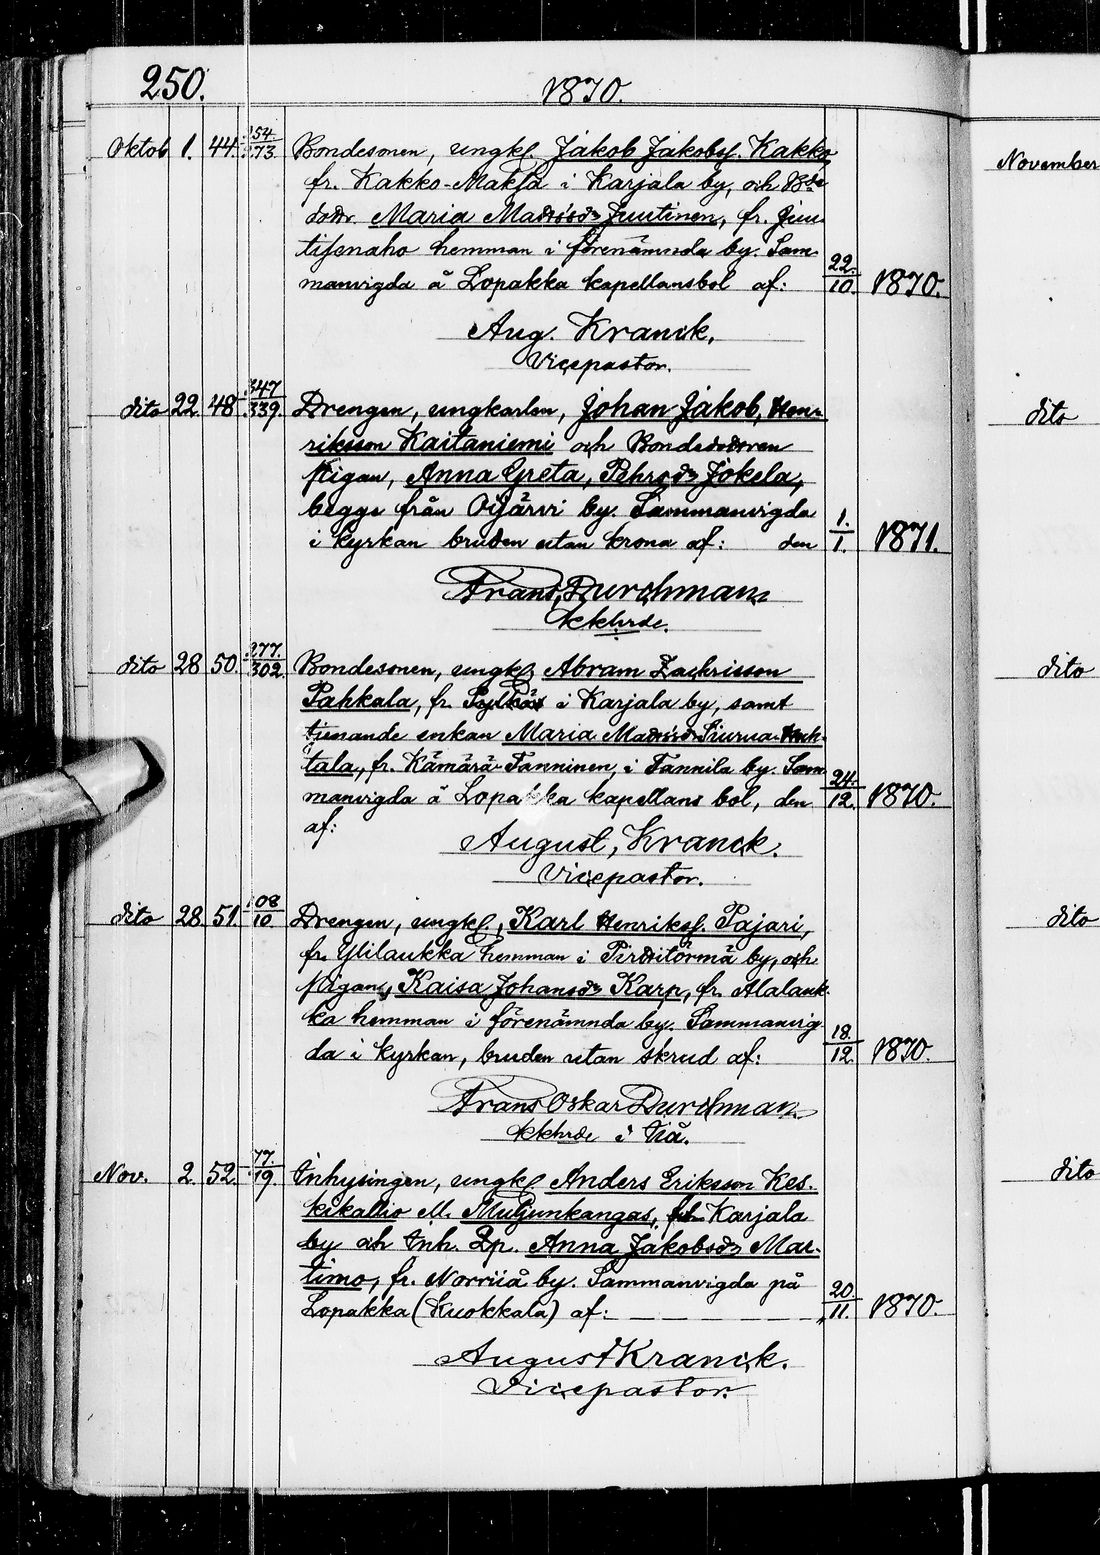 250.
1870.
Oktob. 1. 44. 254./273. Bondesonen, ungkl. Jakob Jakobsf. Kakko
fr. Kakko-Makla i Karjala by, och Bde
dodr Maria Madtsds Juutinen, fr. Juu-
tisenaho hemman i förenämnda by. Sam-
manvigda å Lopakka kapellansbol af: 22./10. 1870.
Aug. Kranck.
Vicepastor.
dito 22. 48. 347/339. Drengen, ungkarlen, Johan Jakob, Hen-
riksson Kaitaniemi och Bondedodren
Pigan, Anna Greta, Pehrsds Jokela,
begge från Oijärvi by. Sammanvigda
i kyrkan bruden utan krona af: den 1./1. 1871.
Frans, Durchman
kkhrde.
dito 28 50. 277./302. Bondesonen, ungkl. Abram Zachrisson
Pahkala, fr. i Karjala by, samt
tjenande enkan Maria Madtsds Siurua-Huh-
tala, fr. Kämärä-Tanninen, i Tannila by. Sam-
manvigda å Lopakka kapellans bol, den 24./12. 1870.
af:
August, Kranck.
Vicepastor.
dito 28. 51. 108/10. Drengen, ungkl., Karl Henriksf. Pajari,
fr. Ylilaukka hemman i Pirttitörmä by, och
Pigan, Kaisa Johansds Karp, fr. Alalauk-
ka hemman i förenämnda by. Sammanvig-
da i kyrkan, bruden utan skrud af: 18./12. 1870.
Frans Oskar Durchman
kkhrde i Iiå.
Nov. 2. 52. 77./19. Inhysingen, ungkl. Anders Eriksson Kes-
kikallio l. Muljunkangas, från Karjala
by och Inh. Dp. Anna Jakobsds Mar-
timo, fr. Norriiå by. Sammanvigda på
Lopakka (Kuokkala) af: 20./11. 1870.
August Kranck.
Vicepastor.
November
dito
dito
dito
dito